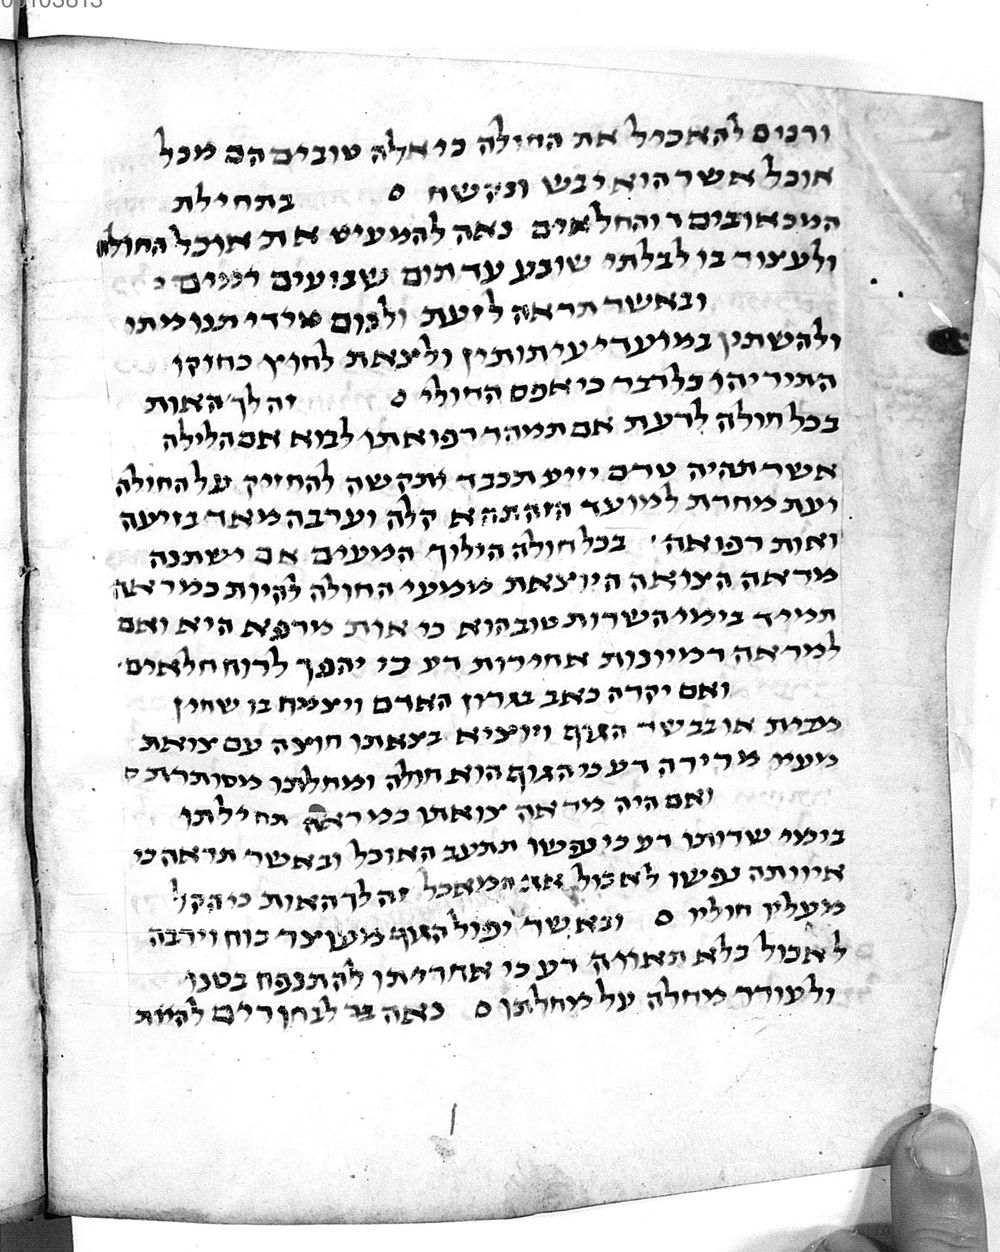 ורכים להאכיל את החולה כי אלה טובים הם מכל
אוכל אשר הוא יבש ונקשח o בתחילת
המכאובים והחלאים נאה להמעיט את אוכל החולה
ולעצור בו לבלתי שובע עד תום שבועים ימים
ובאשר תראה ליעת ולקום מידי תנומתו
ולהשתין במועדי עיתותיו ולצאת לחוץ כחוקו
התיריהו בלדבר כי אפס החולי o זה לך האות
בכל חולה לדעת אם תמהר רפואתו לבוא אם הלילה
אשר תהיה טרם יזיע תכבד ותקשה להחזיק על החולה
ועת מחרת למועד הזה תהא קלה וערבה מאד בזיעה
ואות רפואה בכל חולה הילוך המעים אם ישתנה
מראה הצואה היוצאת ממעי החולה להיות כמראה
תמיד בימי השרות טוב הוא כי אות מרפא היא ואם
למראה דמיונות אחירות דע כי יהפך לרוח חלאים
ואם יקרה כאב בגרון האדם ויצמח בו שחין
מבית או בבשר הגוף ויוציא בצאתו חוצה עם צואת
מעיו מרירה דע כי הגוף הוא חולה ומחלתו מסותרת o
ואם היה מראה צואתו כמראה תחילתו
בימי שרותו דע כי נפשו תתעב האוכל ובאשר תראה כי
איוותה נפשו לאכול את המאכל זה לך האות כי הקל
מעליו חוליו o ובאשר יפול הגוף מעוצר כוח וירבה
לאכול בלא תאווה דע כי אחריתו להתנפח בטנו
ולעורר מחלה על מחלתו o נאה בר לבחורים להיות